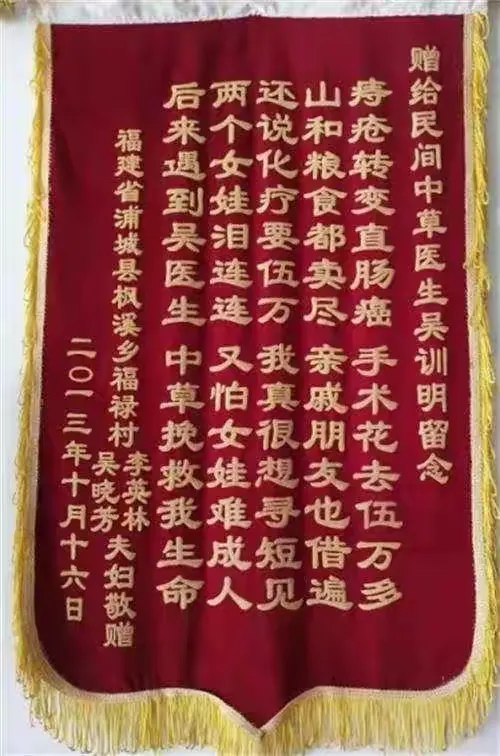 赠给民间中草医生吴训明留念
痔疮转变直肠癌 手术花去伍万多
山和粮食都卖尽 亲戚朋友也借遍
还说化疗要伍万 我真很想寻短见
两个女娃泪连连 又怕女娃难成人
后来遇到吴医生 中草挽救我生命
福建省浦城县枫溪乡福禄村 李英林 吴晓芳 夫妇敬赠
二〇一三年十月十六日